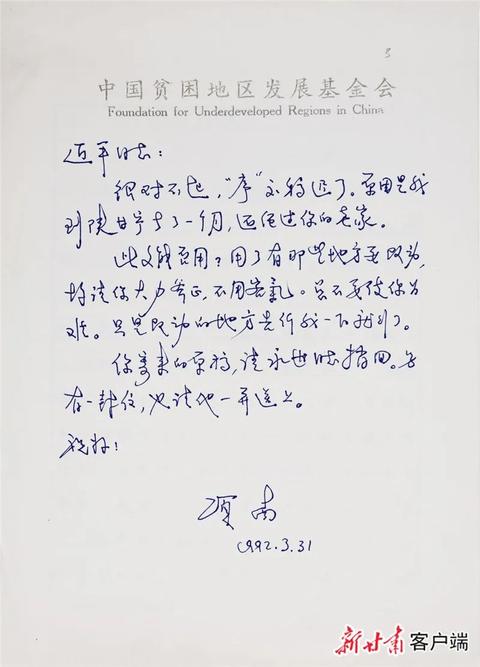 3
中国贫困地区发展基金会
Foundation for Underdeveloped Regions in China
近平同志：
很对不起，“序”交稿迟了。原因是我
到陕甘宁了一个月，还过你的老家。
此文能否用？用了有那些地方要改动，
均请你大力斧正，不用客气。不要使你为
难。只是改动的地方告诉我一下就行了。
你寄来的原稿，请永世同志捎回。另
有一封信，也请他一并送上。
祝好！
项南
1992.3.31
新甘肃 客户端